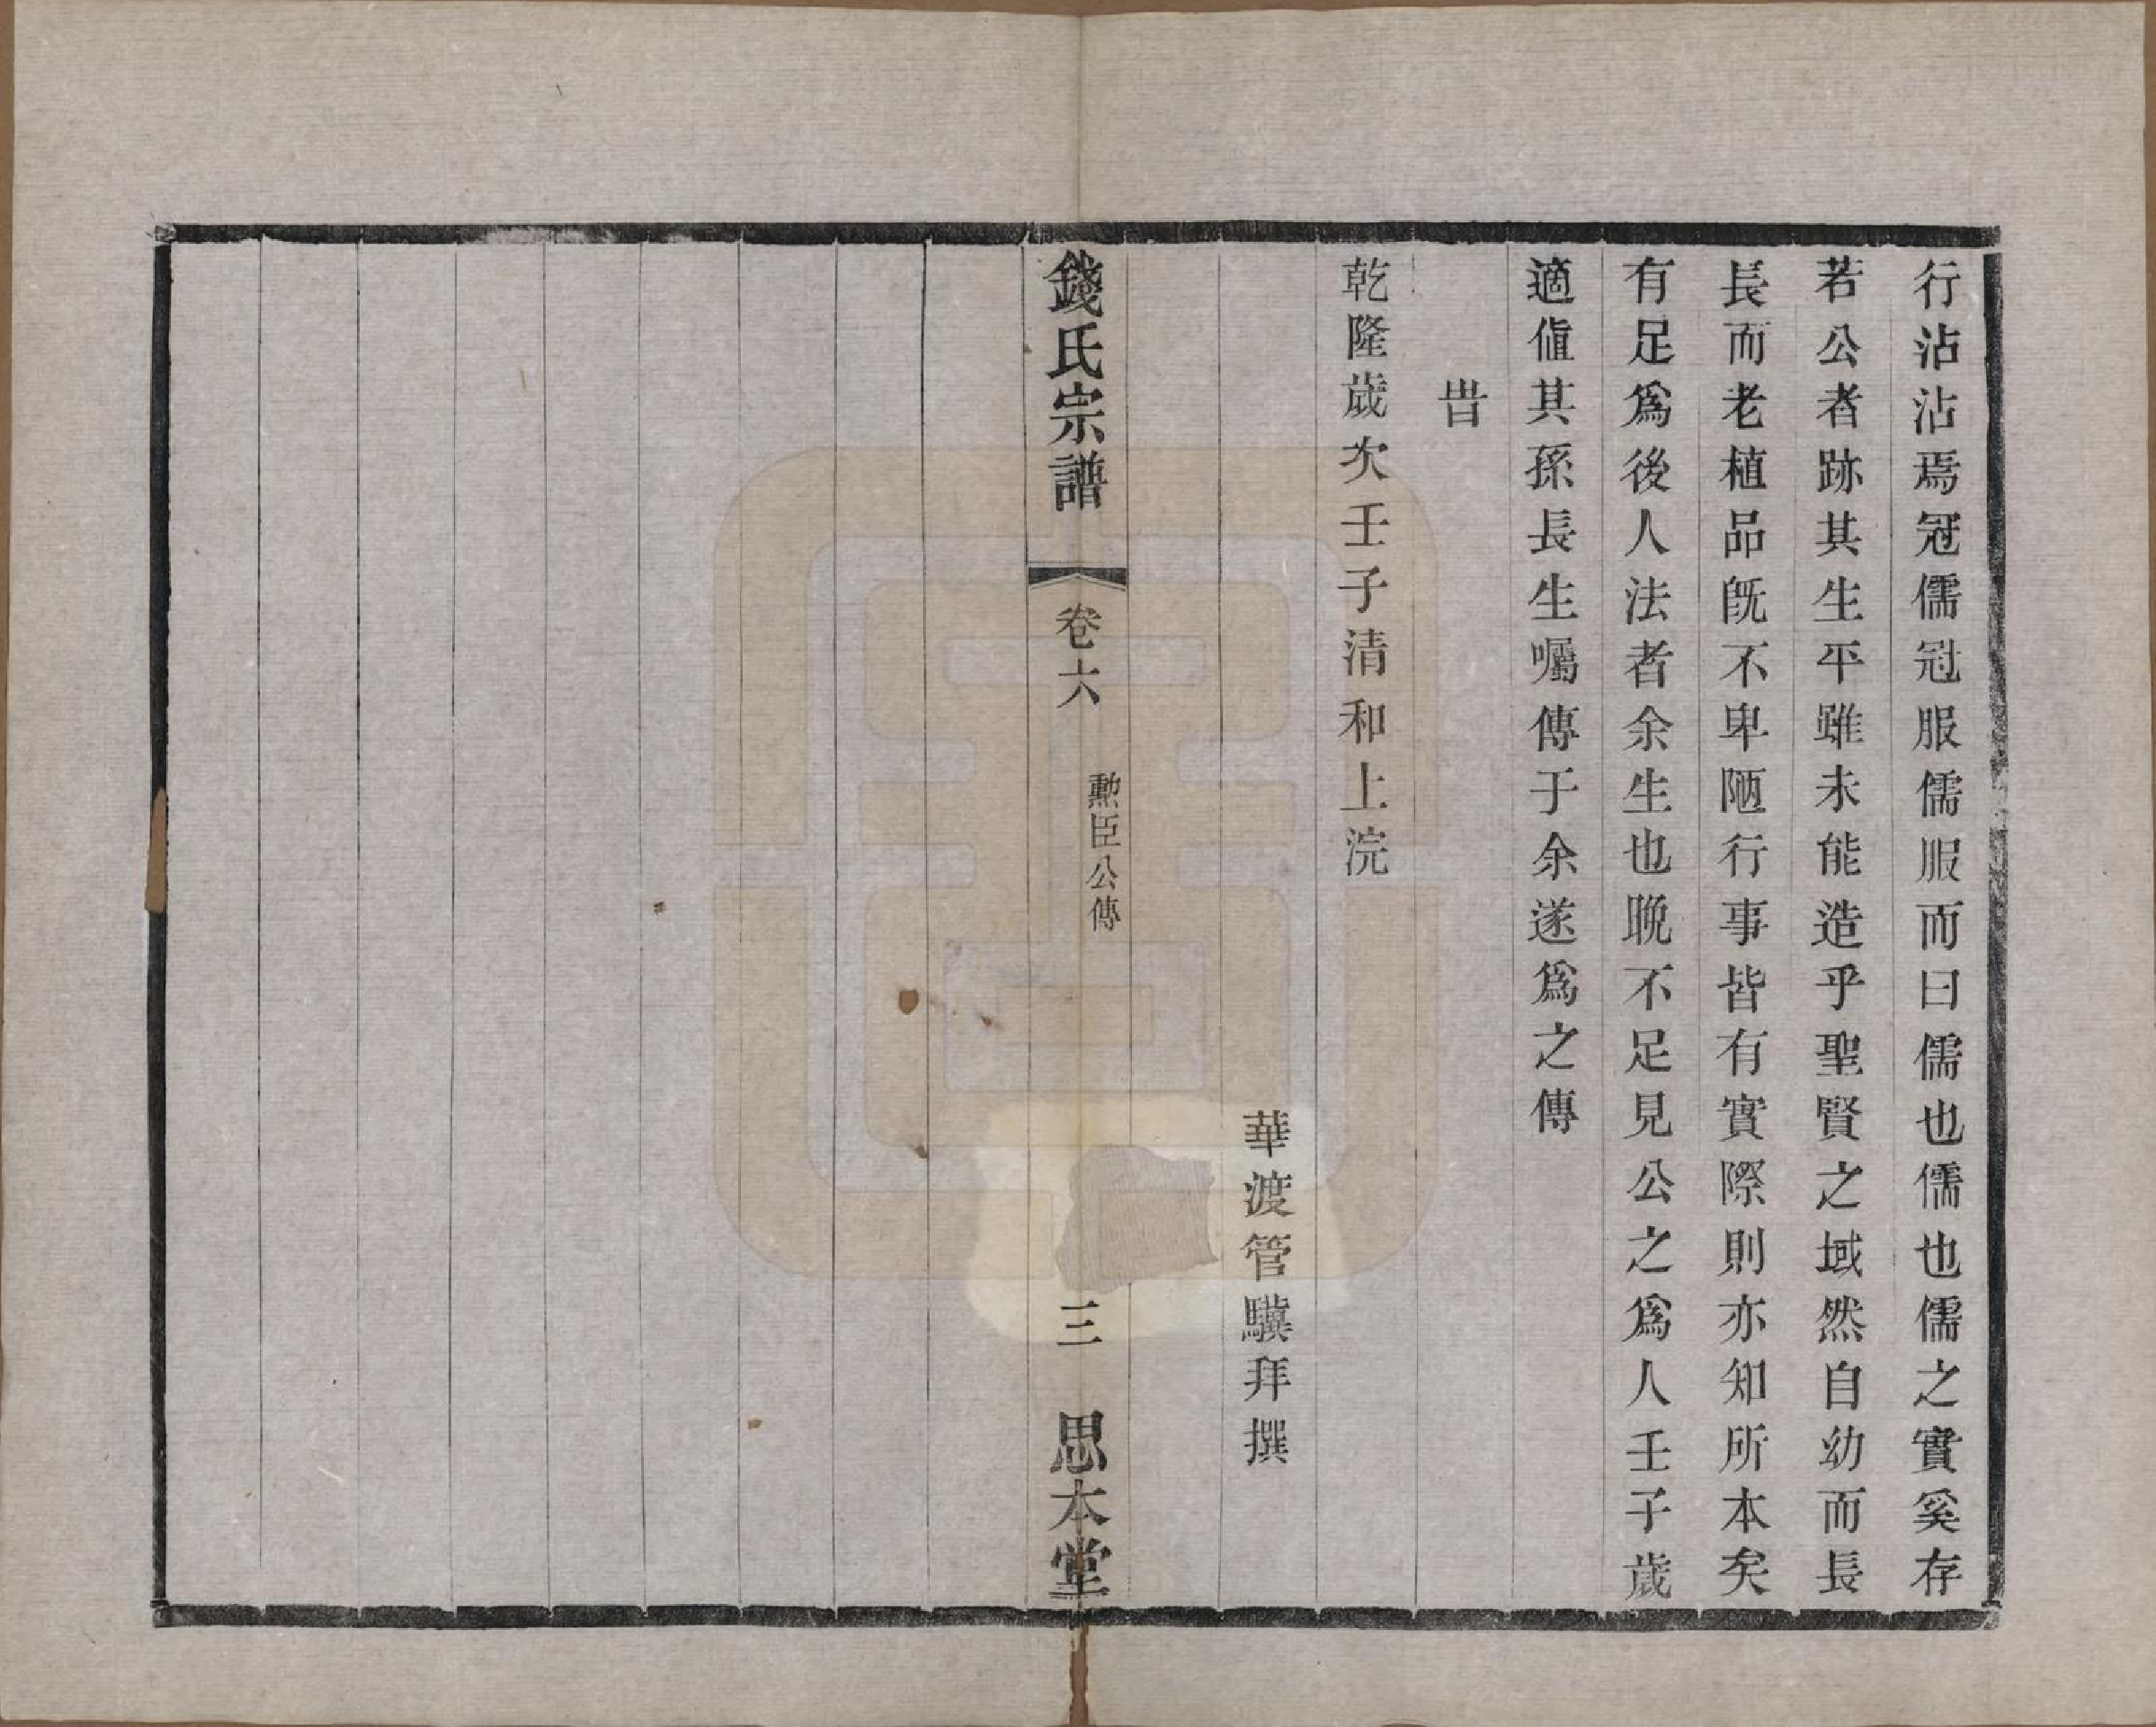 行沾沾焉冠儒冠服儒服而曰儒也儒也儒之實奚存
若公者跡其生平雖未能造乎聖賢之域然自幼而長
長而老植品旣不卑陋行事皆有實際則亦知所本矣
有足爲後人法者余生也晚不足見公之爲人壬子歲
適値其孫長生囑傳于余遂爲之傳
旹
乾隆歲次壬子清和上浣
華渡管驥拜撰
錢氏宗譜
卷六
勲臣公傳
三
思本堂